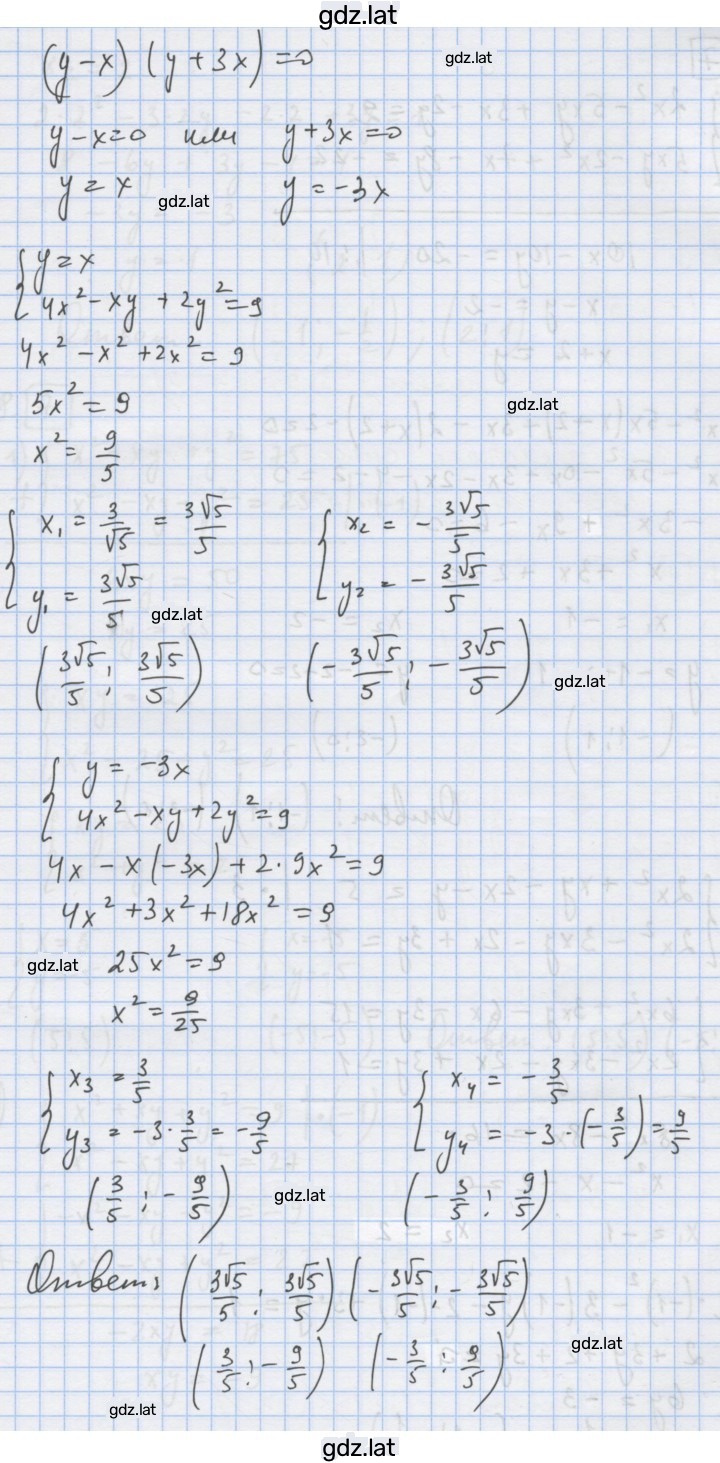 gdz.lat
(y-x) (y+3x)=0
gdz.lat
y-x=0 или y+3x=0
y=x gdz.lat y=-3x
{ y=x
4x²-xy+2y²=9
4x²-x²+2x²=9
5x²=9
gdz.lat
x²=9/5
{ x₁=3/√5=3√5/5 { x₂=-3√5/5
y₁=3√5/5 y₂=-3√5/5
gdz.lat
(3√5/5; 3√5/5) (-3√5/5; -3√5/5)
gdz.lat
{ y=-3x
4x²-xy+2y²=9
4x-x(-3x)+2·9x²=9
4x²+3x²+18x²=9
gdz.lat 25x²=9
x²=9/25
{ x₃=3/5 { x₄=-3/5
y₃=-3·3/5=-9/5 y₄=-3·(-3/5)=9/5
(3/5; -9/5) gdz.lat (-3/5; 9/5)
Ответ: (3√5/5; 3√5/5) (-3√5/5; -3√5/5)
gdz.lat
(3/5; -9/5) (-3/5; 9/5)
gdz.lat
gdz.lat